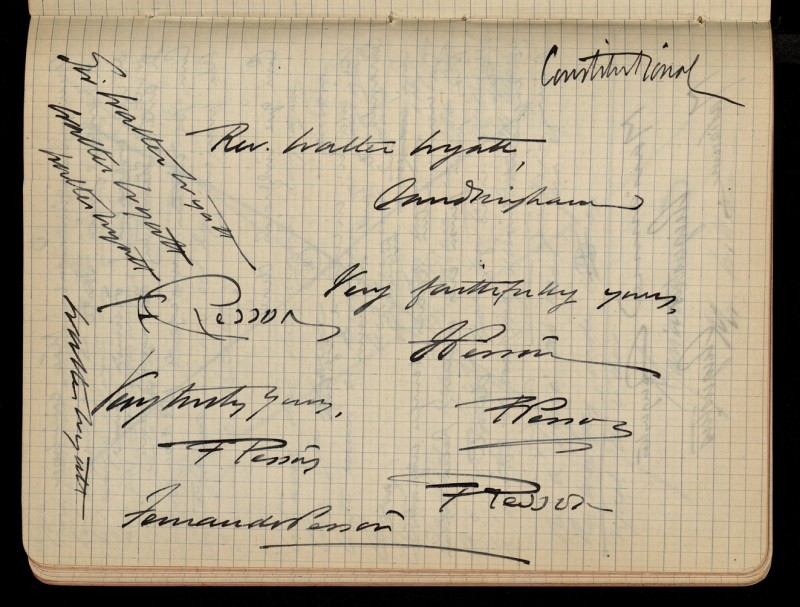 Constitutional
Rev. Walter Wyatt,
Sandringham
Sir Walter Wyatt
Walter Wyatt
Walter Wyatt
Walter Wyatt
Very faithfully yours,
F Pessoa
Pessoa
Very truly yours,
F Pessoa
F Pessoa
F Pessoa
Fernando Pessoa